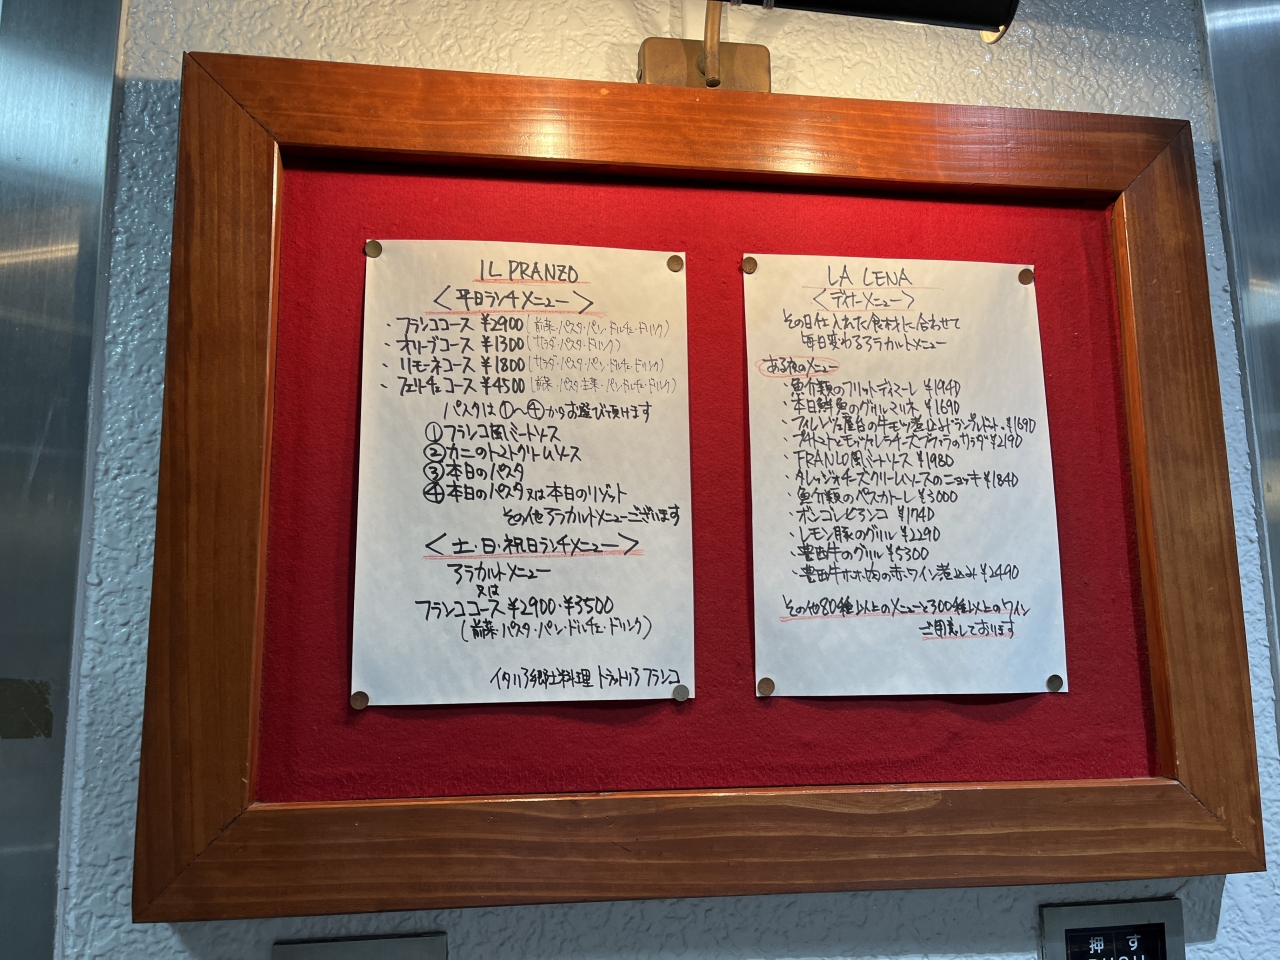 IL PRANZO
〈平日ランチメニュー〉
・フランココース ¥2900(前菜・パスタ・パン・ドルチェ・ドリンク)
・オリーブコース ¥1300(サラダ・パスタ・ドリンク)
・リモーネコース ¥1800(サラダ・パスタ・パン・ドルチェ・ドリンク)
・フェリーチェコース ¥4500(前菜・パスタ・主菜・パン・ドルチェ・ドリンク)
パスタは①〜④からお選び頂けます
①フランコ風ミートソース
②カニのトマトクリームソース
③本日のパスタ
④本日のパスタ又は本日のリゾット
その他アラカルトメニューございます
〈土・日・祝日ランチメニュー〉
アラカルトメニュー
又は
フランココース ¥2900・¥3500
(前菜・パスタ・パン・ドルチェ・ドリンク)
イタリア郷土料理 トラットリア フランコ
LA CENA
〈ディナーメニュー〉
その日仕入れた食材に合わせて
毎日変わるアラカルトメニュー
ある夜のメニュー
・魚介類のフリットディマーレ ¥1940
・本日鮮魚のグリルマリネ ¥1690
・フィレンツェ屋台の牛モツ煮込み ランプレドット ¥1690
・プチトマトとモッツァレラチーズブッファラのサラダ ¥2190
・FRANCO風ミートソース ¥1980
・タレッジォチーズクリームソースのニョッキ ¥1840
・魚介類のペスカトーレ ¥3000
・ボンゴレビアンコ ¥1740
・レモン豚のグリル ¥2290
・豊西牛のグリル ¥5300
・豊西牛ホホ肉の赤ワイン煮込み ¥2490
その他80種以上のメニューと300種以上のワイン
ご用意しております
押す